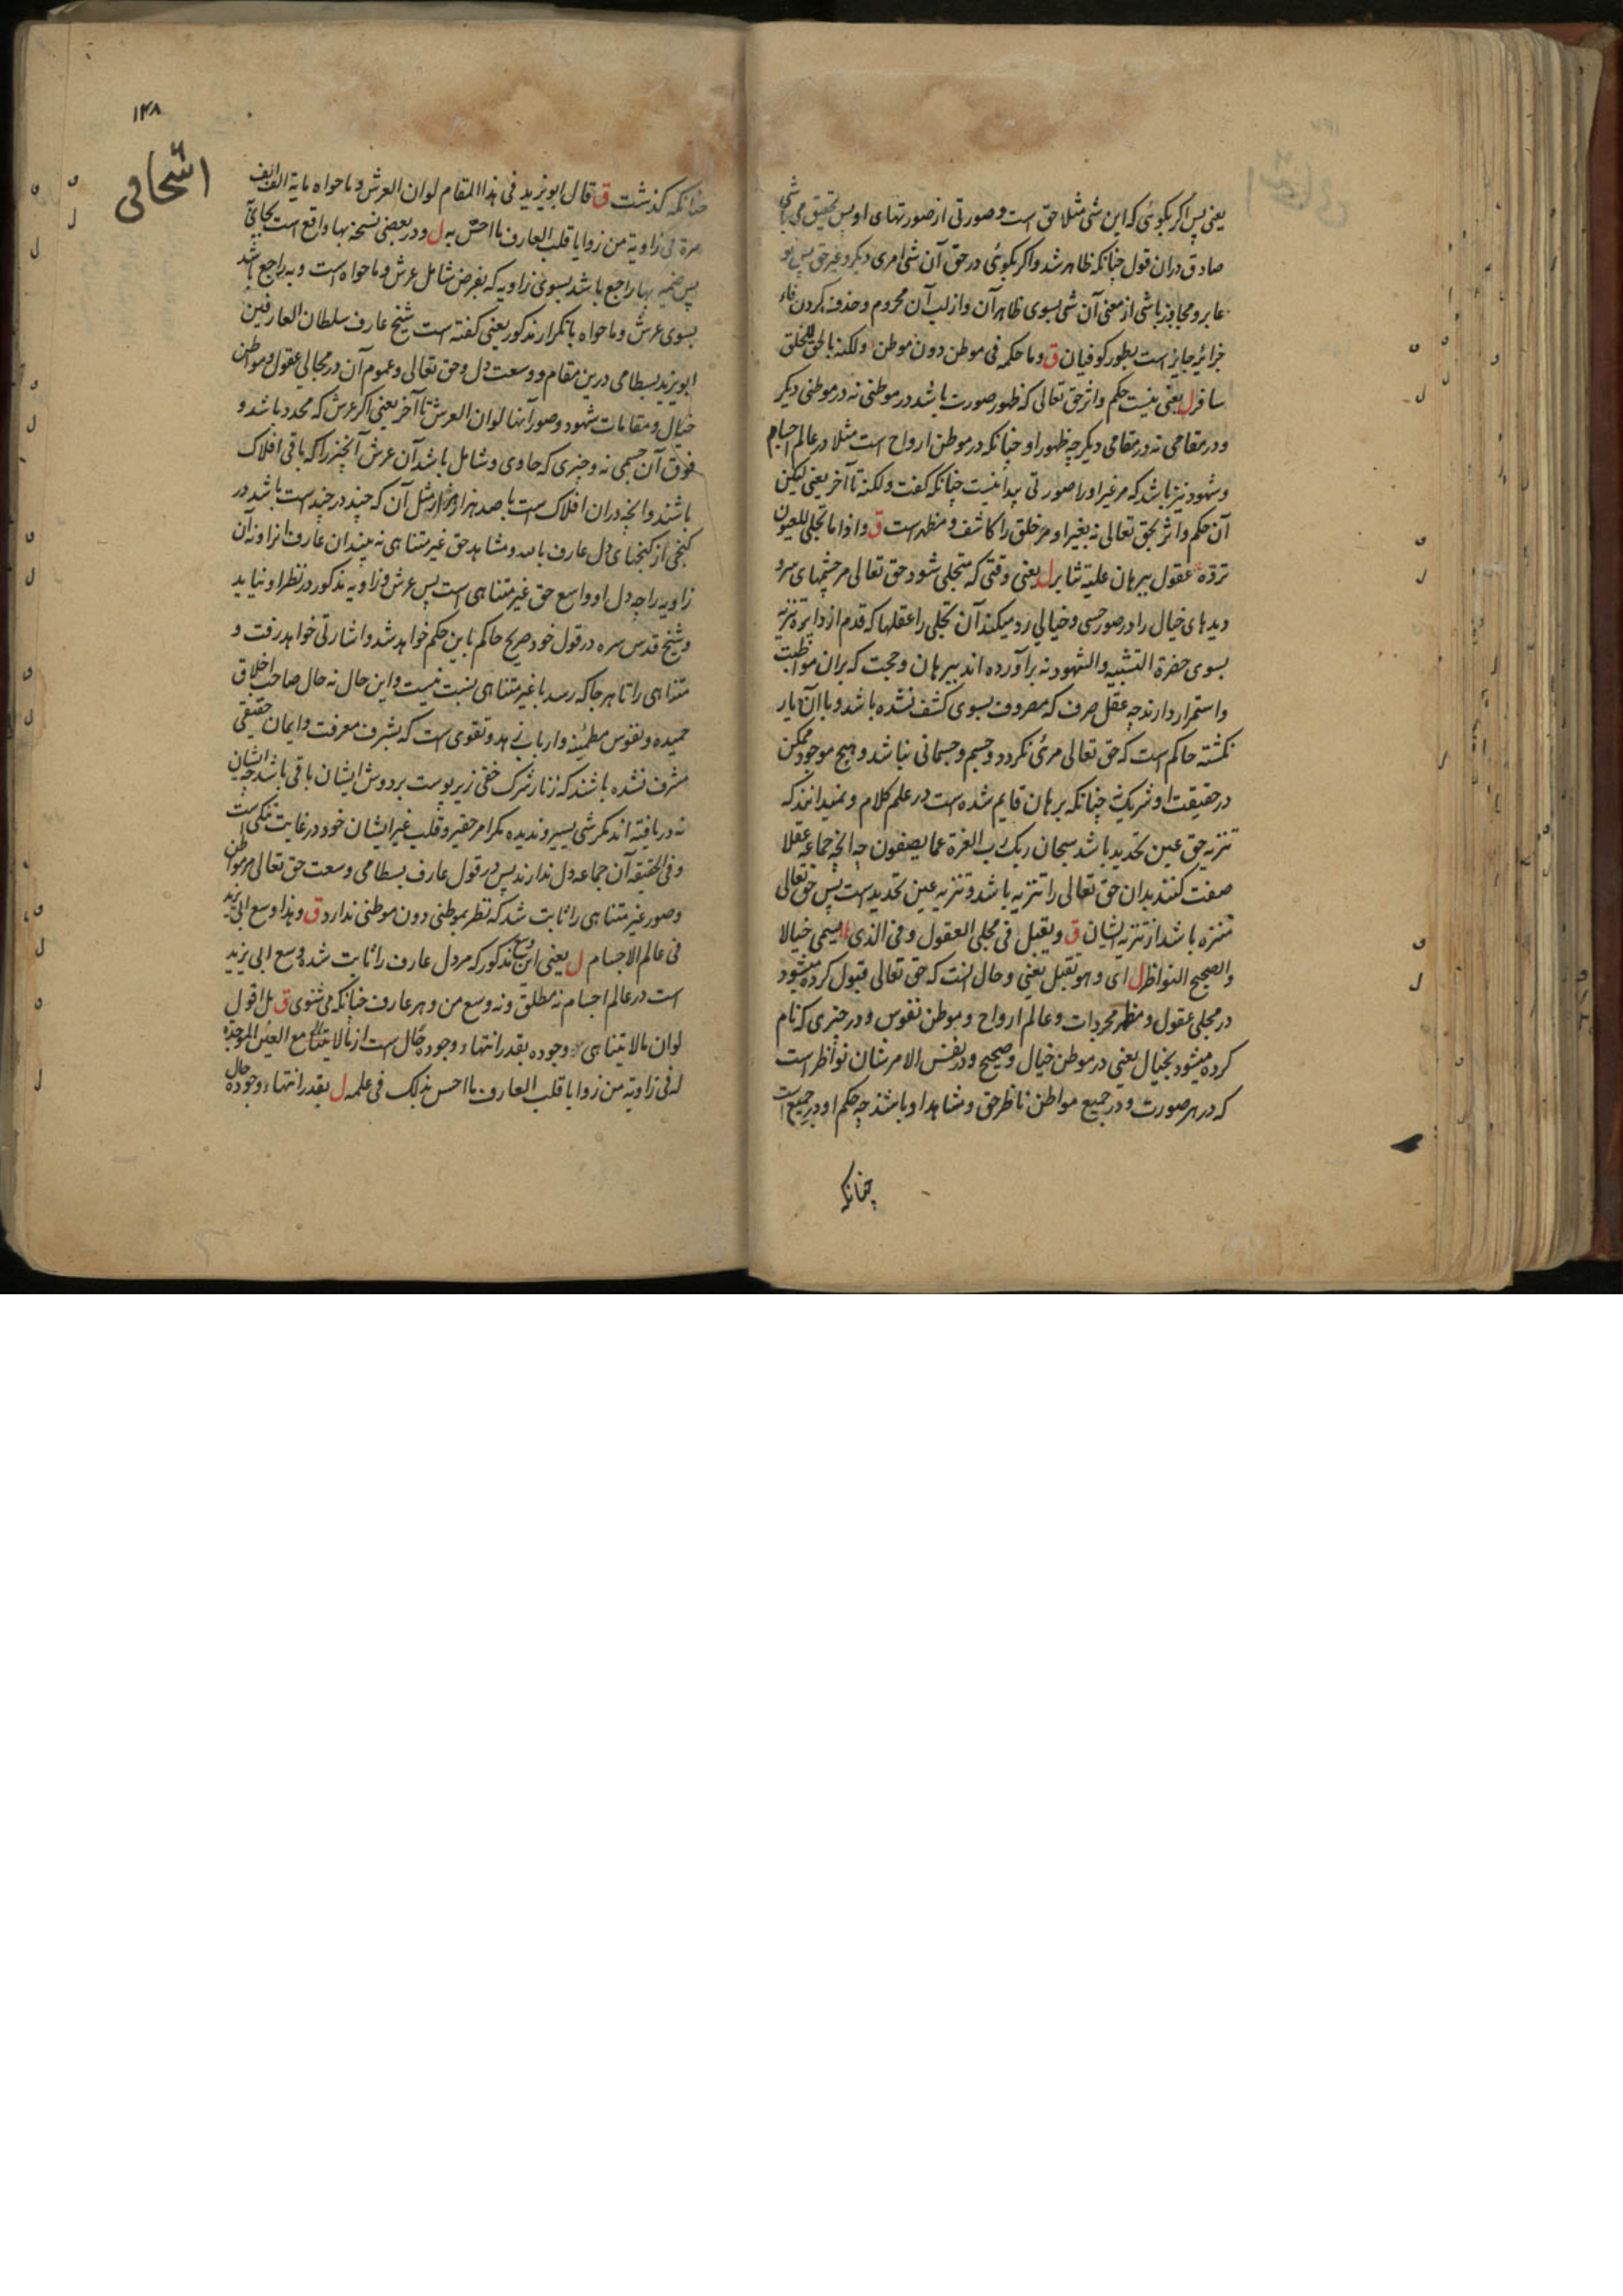 یعنی پس اکر بکوئی که این شی مثلا حق است و صورتی از صورتهای او پس تحقیق می باشی
صادق دران قول چنانکه ظاهر شد و اکر بکوئی در حق آن شی امری دیکر و غیر حق پس تو
عابر و مجاوز باشی از معنی آن شی بسوی ظاهر آن و از لب آن محروم و حذف کردن فاء
جزائیه جایز است بطور کوفیان ق وما حکمه فی موطن دون موطن ولکنه بالحق للخلق
سافر ل یعنی نیست حکم و اثر حق تعالی که ظهور صورت باشد در موطنی نه در موطنی دیکر
و در مقامی نه در مقامی دیکر چه ظهور او چنانکه در موطن ارواح است مثلا در عالم اجسام
و شهود نیز باشد که مر غیر او را صورتی پیدا نیست چنانکه کفت ولکنه تا آخر یعنی لیکن
آن حکم و اثر بحق تعالی نه بغیر او مر خلق را کاشف و مظهر است ق واذا ما تجلی للعیون
تردّه عقول ببرهان علیه تثابر ل یعنی وقتی که متجلی شود حق تعالی مر چشمهای سر و
دیدهای خیال را در صور حسی و خیالی رد میکند آن تجلی را عقلها که قدم از دایره تنزیه
بسوی حضرة التشبیه والشهود نه برآورده اند ببرهان و حجت که بران مواظبت
و استمرار دارند چه عقل صرف که مصروف بسوی کشف نشده باشد و با آن یار
نکشته حاکم است که حق تعالی مرئی نکردد و جسم و جسمانی نباشد و هیچ موجود ممکن
در حقیقت او شریک چنانکه برهان قایم شده است در علم کلام و نمیدانند که
تنزیه حق عین تحدید باشد سبحان ربک رب العزة عما یصفون چه انچه جماعه عقلا
صفت کنند بدان حق تعالی را تنزیه باشد و تنزیه عین تحدید است پس حق تعالی
منزه باشد از تنزیه ایشان ق ویقبل فی مجلی العقول وفی الذی یسمی خیالا
والصحیح النواظر ل ای وهو یقبل یعنی و حال انست که حق تعالی قبول کرده میشود
در مجلی عقول و مظهر مجردات و عالم ارواح و موطن نفوس و در چیزی که نام
کرده میشود بخیال یعنی در موطن خیال و صحیح و در نفس الامر شان نواظر است
که در هر صورت و در جمیع مواطن ناظر حق و مشاهد او باشند چه حکم او در جمیع است
چنانکه
۱۴۸
چنانکه کذشت ق قال ابو یزید فی هذا المقام لو ان العرش وما حواه مایة الف الف
مرة فی زاویة من زوایا قلب العارف ما احسّ به ل و در بعضی نسخه بها واقع است بجای
پس ضمیر بها راجع باشد بسوی زاویه که بفرض شامل عرش وما حواه است و به راجع باشد
بسوی عرش وما حواه با تکرار مذکور یعنی کفته است شیخ عارف سلطان العارفین
ابو یزید بسطامی درین مقام و وسعت دل و حق تعالی و عموم آن در مجالی عقول و مواطن
خیال و مقامات شهود و صور آنها لو ان العرش تا آخر یعنی اکر عرش که محدد باشد و
فوق آن جسمی نه و چیزی که حاوی و شامل باشد آن عرش آنچیز را که باقی افلاک
باشند وانچه دران افلاک است با صد هزار هزار مثل آن که چند در چند است باشد در
کنجی از کنجهای دل عارف و مشاهد حق غیر متناهی نه بیند آن عارف انرا و نه آن
زاویه را چه دل او واسع حق غیر متناهی است پس عرش و زاویه مذکور در نظر او نیاید
و شیخ قدس سره در قول خود صریح حاکم باین حکم خواهد شد و اشارتی خواهد رفت و
متناهی را تا هر جا که رسد با غیر متناهی نسبت نیست و این حال نه حال صاحب اخلاق
حمیده و نفوس مطمئنه و ارباب زهد و تقوی است که بشرف معرفت و ایمان حقیقی
مشرف نشده باشند که زنار شرک خفی زیر پوست بر دوش ایشان باقی باشد چه ایشان
نه دریافته اند مکر شی یسیر و ندیده مکر امر حقیر و قلب غیر ایشان خود در غایت تنکی است
و فی الحقیقه آن جماعه دل ندارند پس در قول عارف بسطامی وسعت حق تعالی مر مواطن
و صور غیر متناهی را ثابت شد که نظر بموطنی دون موطنی ندارد ق وهذا وسع ابی یزید
فی عالم الاجسام ل یعنی این وسع مذکور که مر دل عارف را ثابت شده وسع ابی یزید
است در عالم اجسام نه مطلق و نه وسع من و هر عارف چنانکه می شنوی ق بل اقول
لو ان ما لا یتناهی وجوده بقدر انتهاء وجوده حال است از ما لا یتناهی مع العین الموجدة
له فی زاویة من زوایا قلب العارف ما احس بذلک فی علمه ل بقدر انتهاء وجوده حال